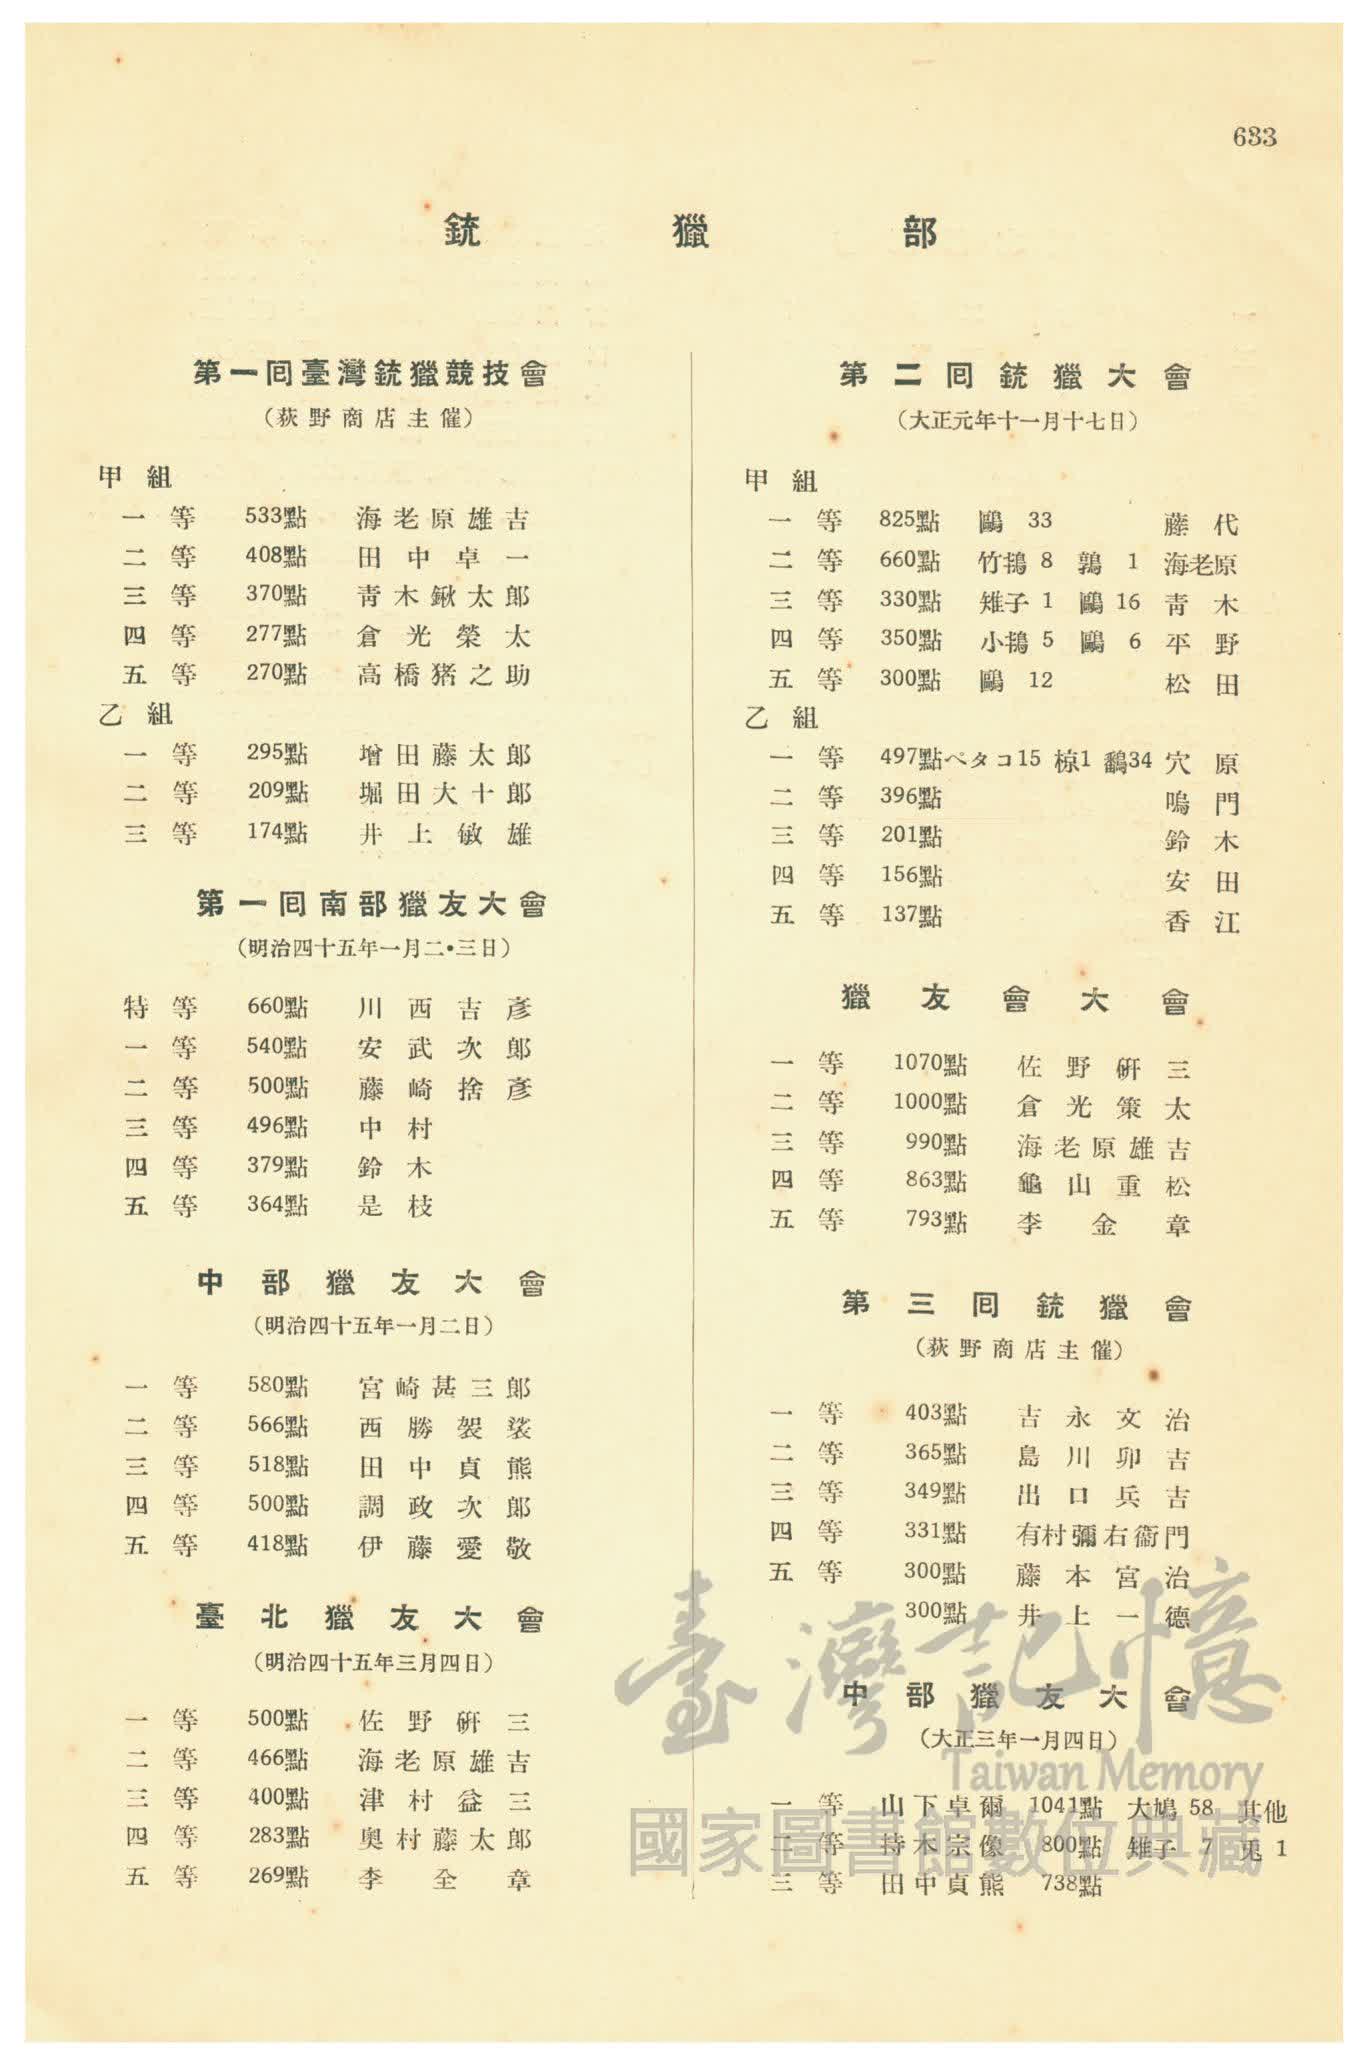 633
銃獵部
第一囘臺灣銃獵競技會
（荻野商店主催）
甲組
一等 533點 海老原雄吉
二等 408點 田中卓一
三等 370點 靑木鍬太郎
四等 277點 倉光榮太
五等 270點 高橋猪之助
乙組
一等 295點 增田藤太郎
二等 209點 堀田大十郎
三等 174點 井上敏雄
第一囘南部獵友大會
（明治四十五年一月二・三日）
特等 660點 川西吉彥
一等 540點 安武次郎
二等 500點 藤崎捨彥
三等 496點 中村
四等 379點 鈴木
五等 364點 是枝
中部獵友大會
（明治四十五年一月二日）
一等 580點 宮崎甚三郎
二等 566點 西勝袈裟
三等 518點 田中貞熊
四等 500點 調政次郎
五等 418點 伊藤愛敬
臺北獵友大會
（明治四十五年三月四日）
一等 500點 佐野硏三
二等 466點 海老原雄吉
三等 400點 津村益三
四等 283點 奧村藤太郎
五等 269點 李全章
第二囘銃獵大會
（大正元年十一月十七日）
甲組
一等 825點 鷗 33 藤代
二等 660點 竹鴇 8 鶉 1 海老原
三等 330點 雉子 1 鷗 16 靑木
四等 350點 小鴇 5 鷗 6 平野
五等 300點 鷗 12 松田
乙組
一等 497點 ペタコ15 椋1 鷸34 穴原
二等 396點 鳴門
三等 201點 鈴木
四等 156點 安田
五等 137點 香江
獵友會大會
一等 1070點 佐野硏三
二等 1000點 倉光策太
三等 990點 海老原雄吉
四等 863點 龜山重松
五等 793點 李金章
第三囘銃獵會
（荻野商店主催）
一等 403點 吉永文治
二等 365點 島川卯吉
三等 349點 出口兵吉
四等 331點 有村彌右衞門
五等 300點 藤本宮治
300點 井上一德
中部獵友大會
（大正三年一月四日）
一等 山下卓爾 1041點 大鳩 58 其他
二等 持木宗像 800點 雉子 7 兎 1
三等 田中貞熊 738點
臺灣記憶
Taiwan Memory
國家圖書館數位典藏